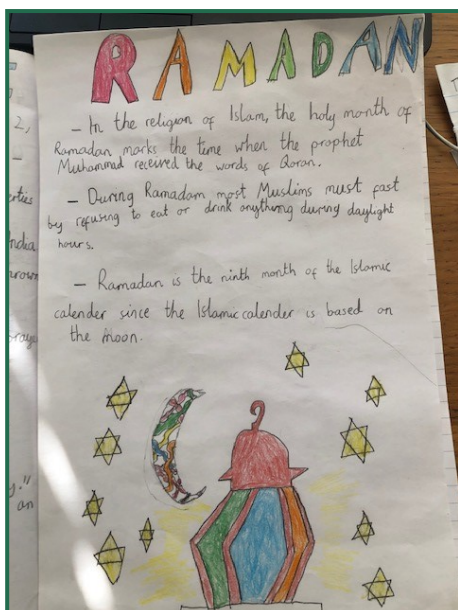 RAMADAN
- In the religion of Islam, the holy month of
Ramadan marks the time when the prophet
Muhammad received the words of Qoran.
- During Ramadam most Muslims must fast
by refusing to eat or drink anything during daylight
hours.
- Ramadan is the ninth month of the Islamic
calender since the Islamic calender is based on
the moon.
2,
India
an